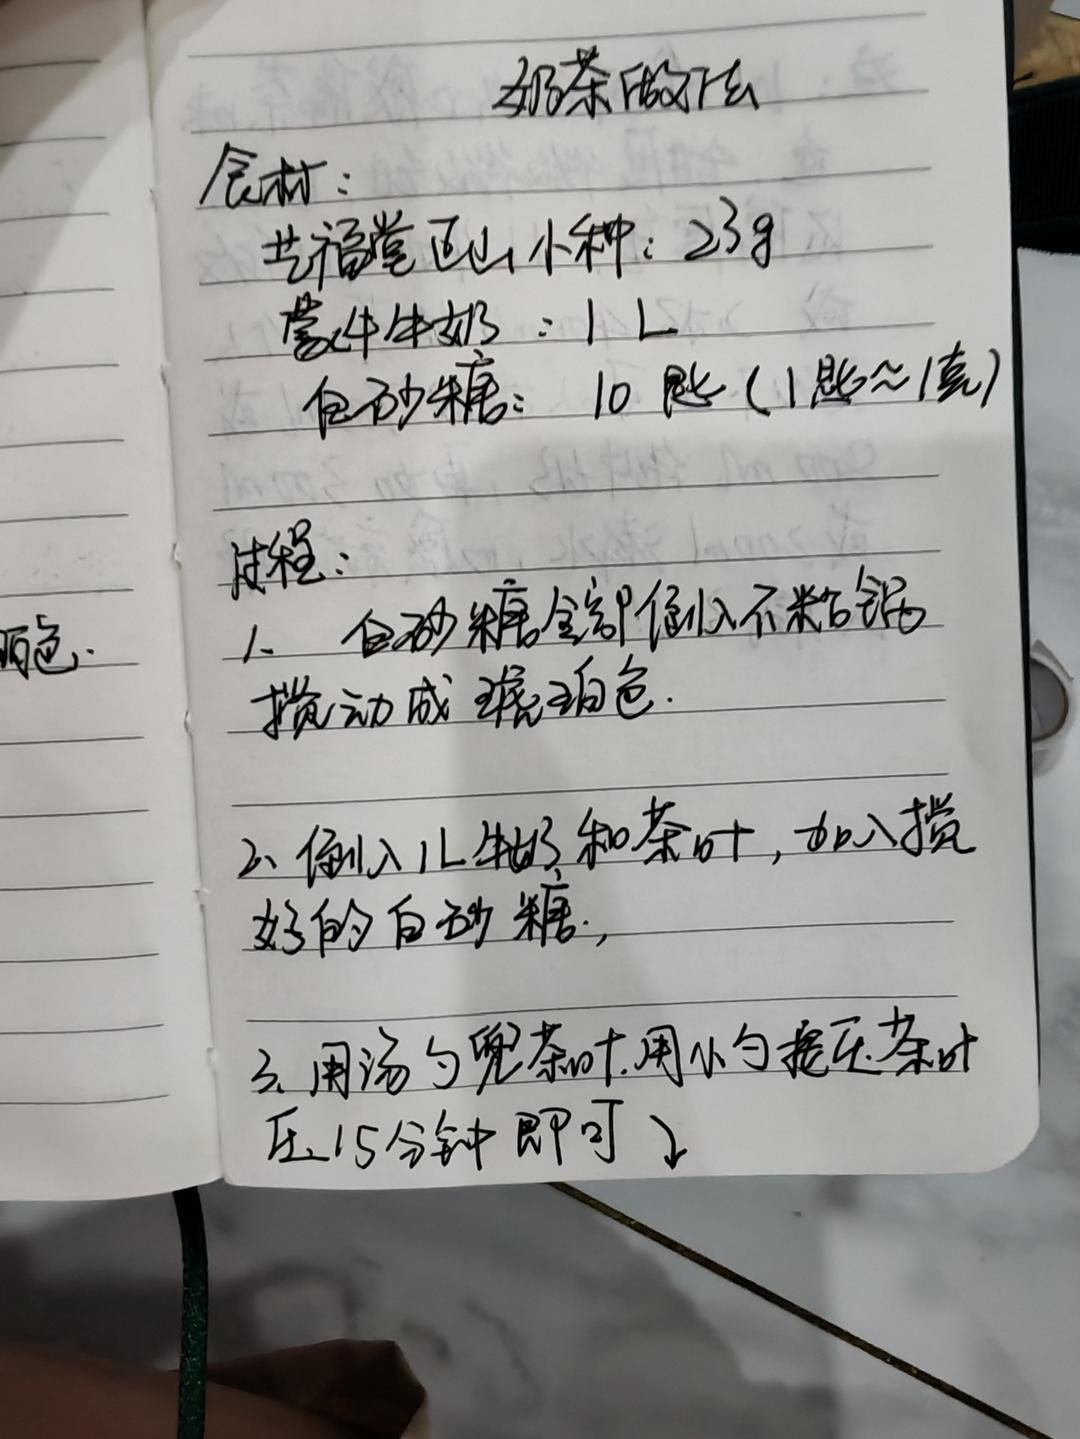 奶茶做法
食材：
艺福堂正山小种：23g
蒙牛牛奶：1L
白砂糖： 10匙（1匙≈1克）
过程：
1、 白砂糖全部倒入不粘锅
搅动成琥珀色.
2、倒入1L牛奶和茶叶，加入搅
好的白砂糖.，
3、用汤勺兜茶叶.用小勺挤压茶叶
压15分钟即可↓
珀色.